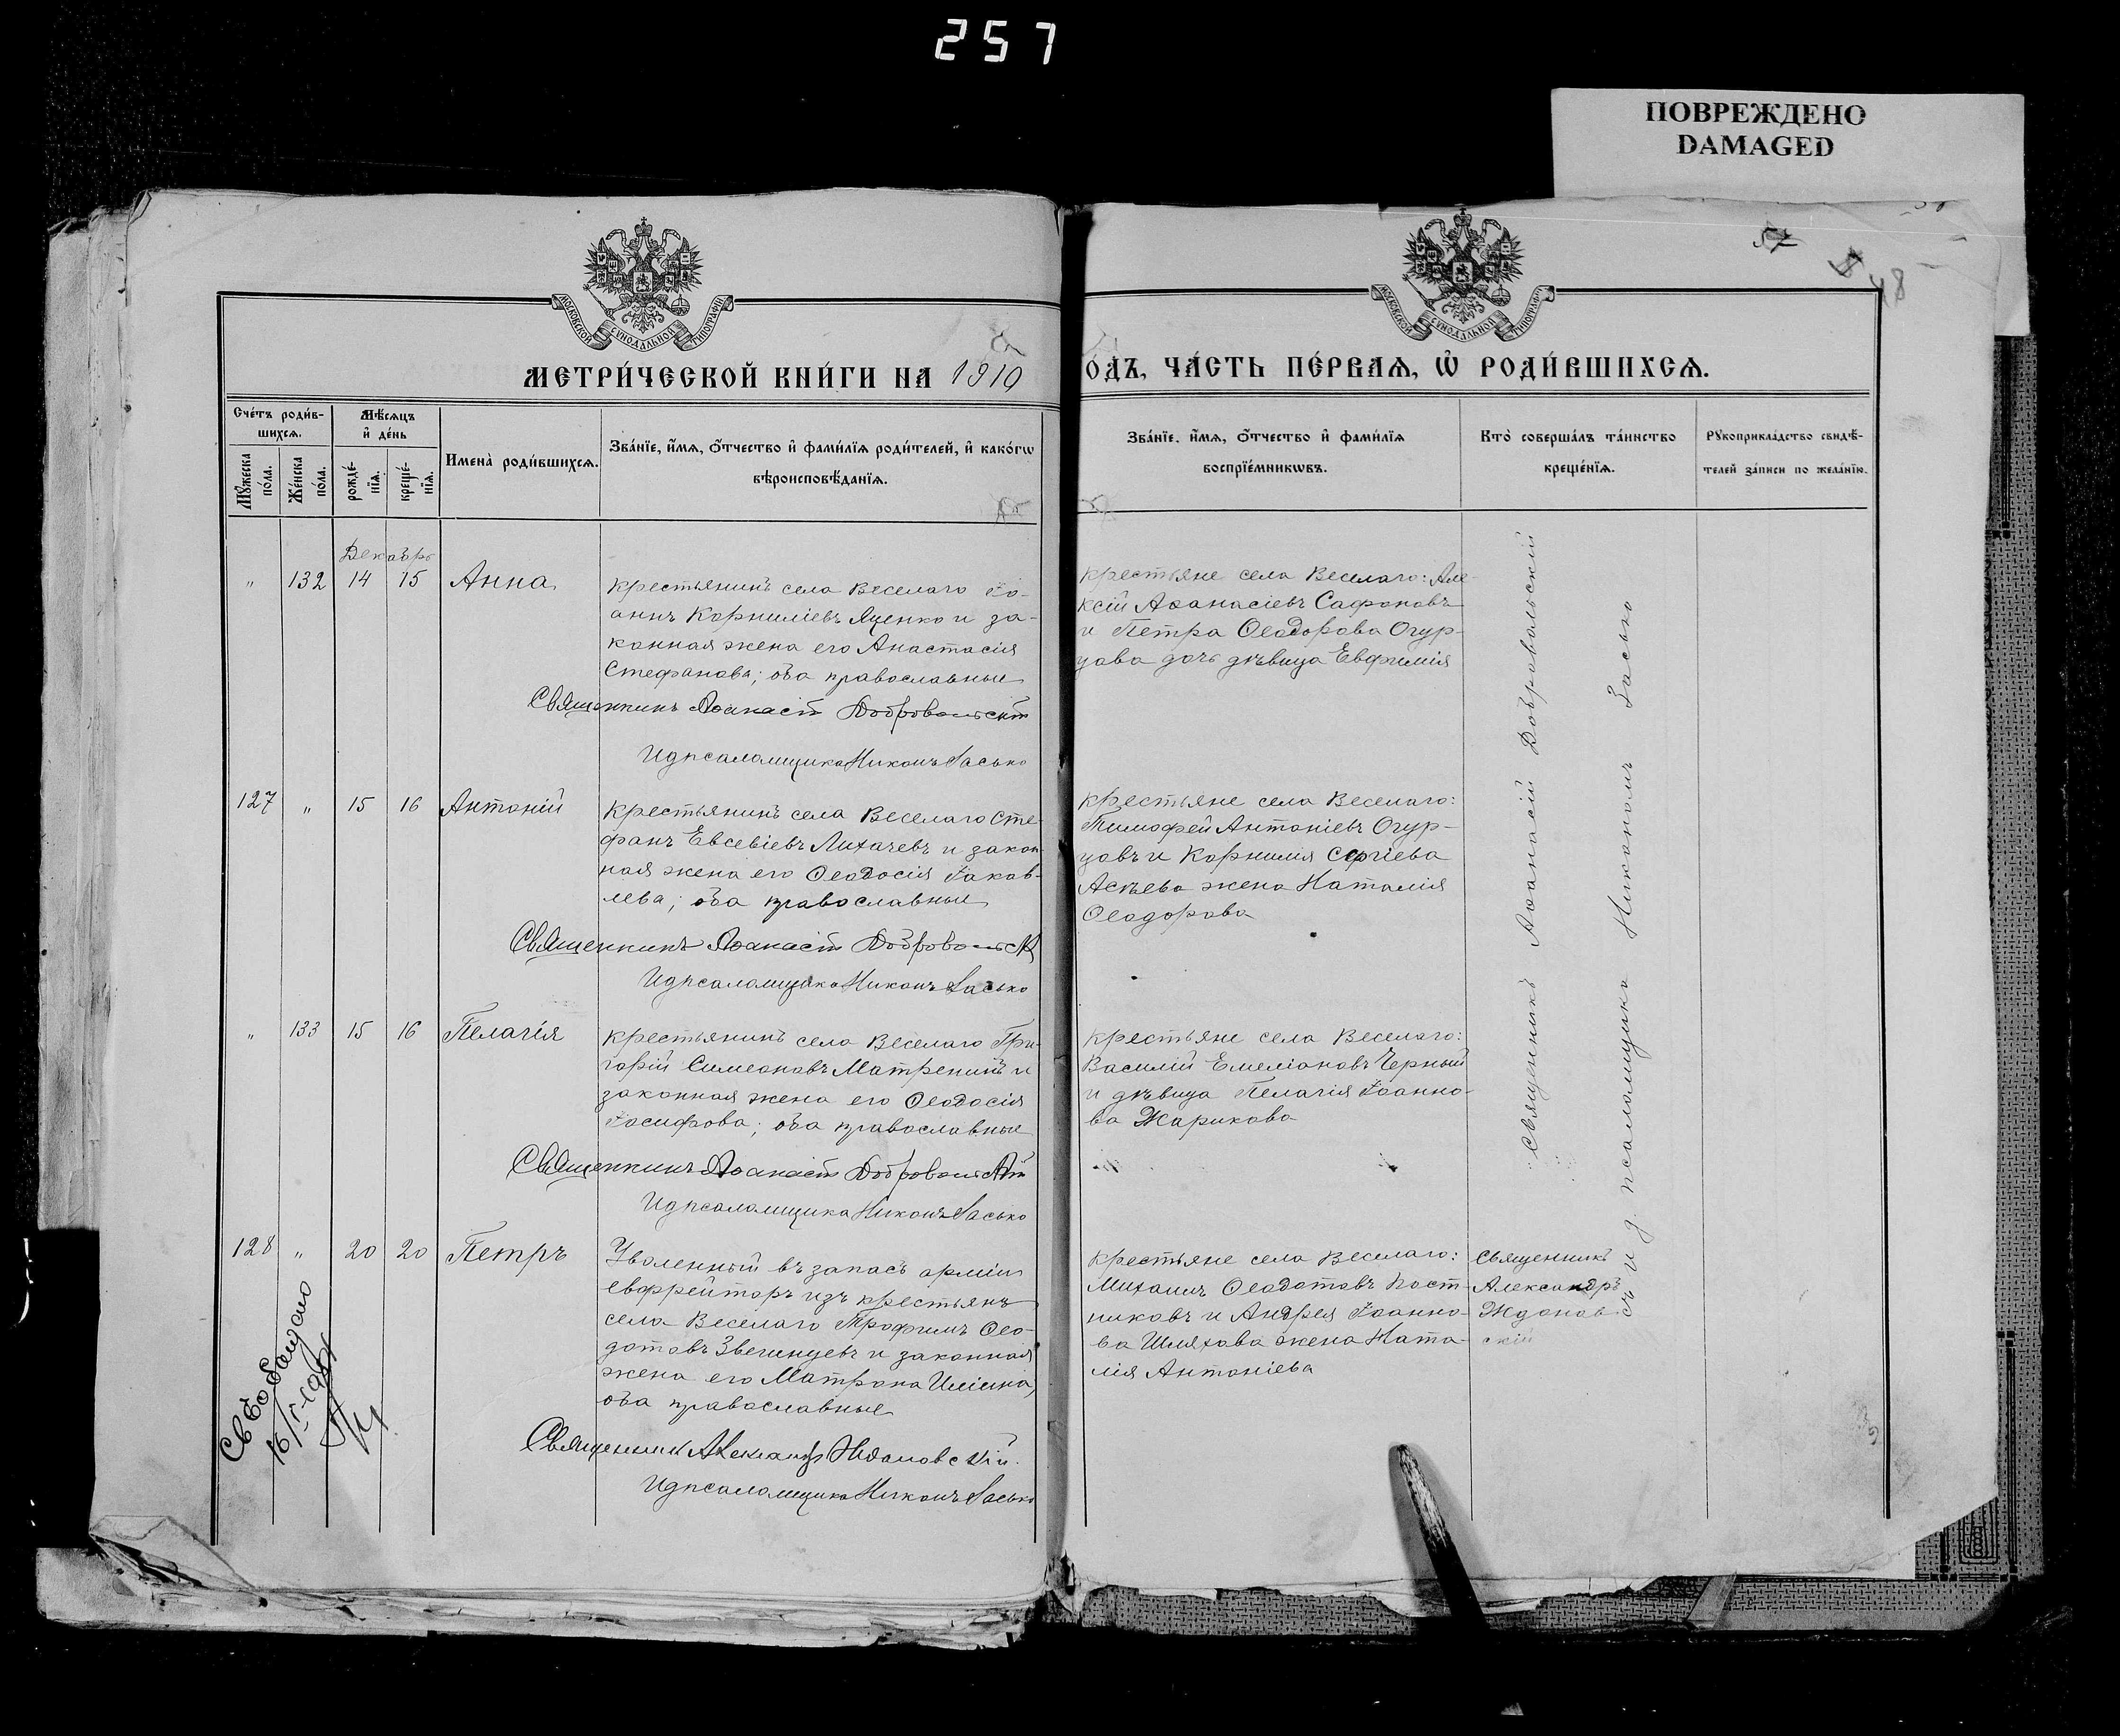 257
ПОВРЕЖДЕНО
DAMAGED
57
48
МОСКОВСКОЙ СѴНОДАЛЬНОЙ ТИПОГРАФІИ
МОСКОВСКОЙ СѴНОДАЛЬНОЙ ТИПОГРАФІИ
МЕТРИ́ЧЕСКОЙ КНИ́ГИ НА 1910
ОДЪ, ЧА́СТЬ ПЕ́РВАѦ, Ѡ҆ РОДИ́ВШИХСѦ.
Сче́тъ роди́в-
шихсѧ.
Мѣ́сѧцъ
и҆ де́нь
Мꙋ́жеска
по́ла.
Же́нска
по́ла.
рожде́-
нїѧ.
креще́-
нїѧ.
Имена̀ роди́вшихсѧ.
Зва́нїе, и҆́мѧ, ѻ҆́тчество и҆ фами́лїѧ роди́телей, и҆ како́гѡ
вѣроисповѣ́данїѧ.
Зва́нїе, и҆́мѧ, ѻ҆́тчество и҆ фами́лїѧ
воспрїе́мникѡвъ.
Кто̀ соверша́лъ та́инство
креще́нїѧ.
Рꙋкоприкла́дство свидѣ́-
телей за́писи по жела́нїю.
Декабрь
" 132 14 15 Анна
крестьянинъ села Веселаго Іо-
аннъ Корниліевъ Яценко и за-
конная жена его Анастасія
Стефанова; оба православные
Священникъ Аѳанасій Добровольскій
И д псаломщика Никонъ Засько
крестьяне села Веселаго: Але-
ксій Аѳанасіевъ Сафоновъ
и Петра Ѳеодорова Огур-
цова дочь дѣвица Евфимія
127 " 15 16 Антоній
крестьянинъ села Веселаго Сте-
фанъ Евсевіевъ Лихачевъ и закон-
ная жена его Ѳеодосія Іаков-
лева; оба православные
Священникъ Аѳанасій Добровольскій
И д псаломщика Никонъ Засько
крестьяне села Веселаго:
Тимофей Антоніевъ Огур-
цовъ и Корнилія Сергіева
Асѣева жена Наталія
Ѳеодорова
" 133 15 16 Пелагія
крестьянинъ села Веселаго Гри-
горій Симеоновъ Матренинъ и
законная жена его Ѳеодосія
Іосифова; оба православные
Священникъ Аѳанасій Добровольскій
И д псаломщика Никонъ Засько
крестьяне села Веселаго:
Василій Емеліановъ Черный
и дѣвица Пелагія Іоанно-
ва Жарикова
128 " 20 20 Петръ
Уволенный въ запасъ арміи
ефрейторъ изъ крестьянъ
села Веселаго Трофимъ Ѳео-
дотовъ Звегинцевъ и законная
жена его Матрона Иліина,
оба православные
Священникъ Александръ Ждановскій
И д псаломщика Никонъ Засько
крестьяне села Веселаго:
Михаилъ Ѳеодотовъ Пост-
никовъ и Андрея Іоанно-
ва Шляхова жена Ната-
лія Антоніева
Священникъ
Александръ
Жданов-
скій
Священникъ Аѳанасій Добровольскій
съ и д. псаломщика Никономъ Засько